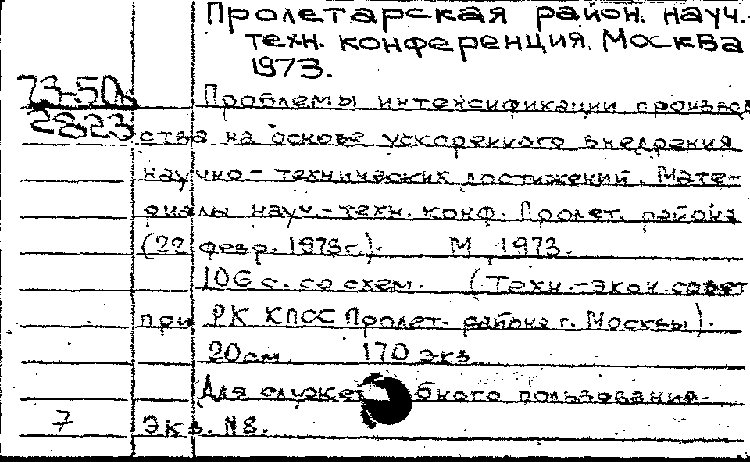 Пролетарская район. науч.
техн. конференция. Москва
1973.
73-50
2823
Проблемы интенсификации производ
ства на основе ускоренного внедрения
научно-технических достижений. Мате-
риалы науч.-техн. конф. Пролет. района
(22 февр. 1973г.). М 1973.
106 с. со схем. (Техн.-экон. совет
при РК КПСС Пролет. района г. Москвы).
20см. 170 экз
Для служебного пользования.
7 Экз. N8.